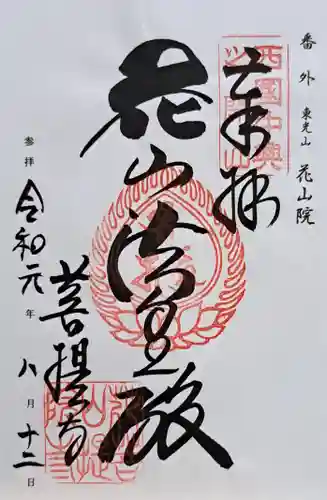 番外 東光山 花山院
奉拝
花山法皇殿
菩提寺
参拝 令和元年 八月 十二日